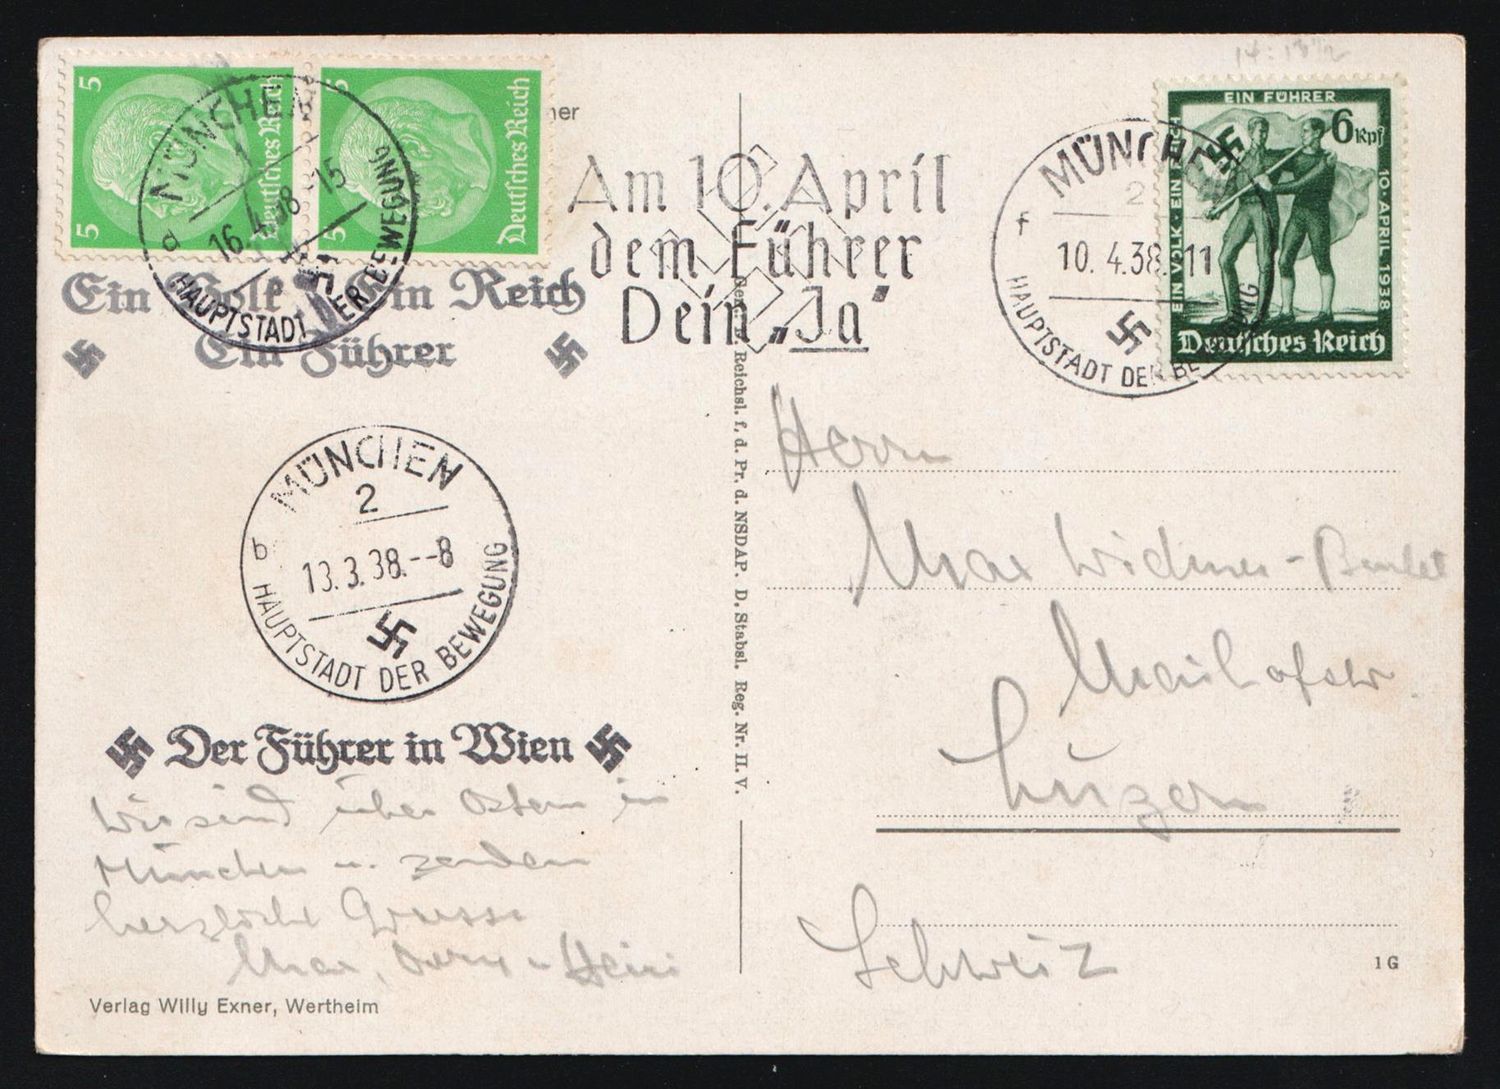 14:13½
5
5
Deutsches Reich
5
5
Deutsches Reich
MÜNCHEN
1
d
16.4.38.-15
HAUPTSTADT DER BEWEGUNG
ner
Ein Volk, Ein Reich
Ein Führer
Am 10. April
dem Führer
Dein „Ja"
MÜNCHEN
2
f
10. 4.38. 11
HAUPTSTADT DER BEWEGUNG
EIN FÜHRER
6 Rpf
EIN VOLK · EIN REICH
10. APRIL 1938
Deutsches Reich
MÜNCHEN
2
b
13.3.38.--8
HAUPTSTADT DER BEWEGUNG
Der Führer in Wien
Wir sind über Ostern in
München u. senden
herzliche Grüsse
Max, u Heini
Verlag Willy Exner, Wertheim
Reichsl. f. d. Pr. d. NSDAP. D. Stabsl. Reg. Nr. II. V.
Herrn
Max Widmer-
Maihofstr.
Luzern
Schweiz
1 G